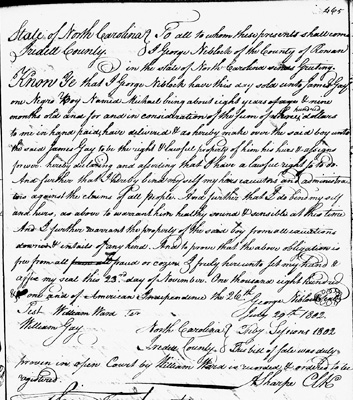 445
State of North Carolina } To all to whom these presents shall come
Iredell County. } I George Niblock of the County of Rowan
in the state of North Carolina sends Greeting
Know Ye that I George Niblock have this day sold unto James Gay
one Negro Boy Named Michael being about eight years of age & nine
months old and for and in consideration of the sum of hundred dollars
to me in hand paid, have delivered & as hereby make over the said boy unto
the said James Gay to be the right & lawful property of him his heirs & assigns
forever hereby declaring and asserting that I have a lawful right so to do.
And further that I hereby bind myself my heirs executors and administra
tors against the claims of all people. And further that I do bend my self
and heirs, as above to warrant him healthy sound & sensible at this time
And I further warrant the property of the said boy from all executions
dowries & entails of any kind. And to prove that the above obligation is
free from all fraud or cozen I freely hereunto set my hand &
affix my seal this 23rd day of November. One thousand eight hundred
& one and of American Independence the 26th
George Niblock
Test William Ward
July 29th 1802.
William Gay
North Carolina } July Sessions 1802
Iredell County } This bill of sale was duly
proven in open Court by William Ward is recorded & ordered to be
registered.
A Sharpe Clk